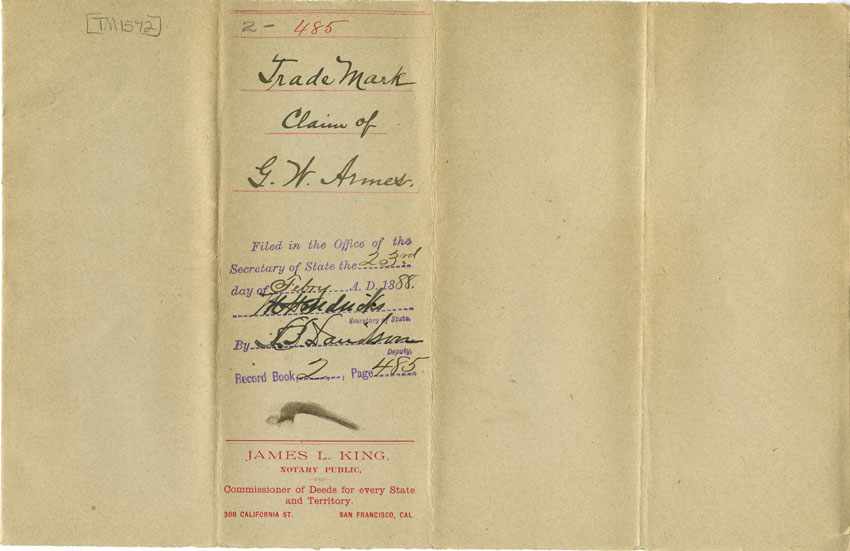 [TM1572]
2 - 485
Trade Mark
Claim of
G. W. Armes.
Filed in the Office of the
Secretary of State the 23rd
day of Febry A. D. 1888.
W C Hendricks
Secretary of State.
By Davidson
Deputy.
Record Book, 2, Page 485
JAMES L. KING,
NOTARY PUBLIC,
AND
Commissioner of Deeds for every State
and Territory.
308 CALIFORNIA ST. SAN FRANCISCO, CAL.